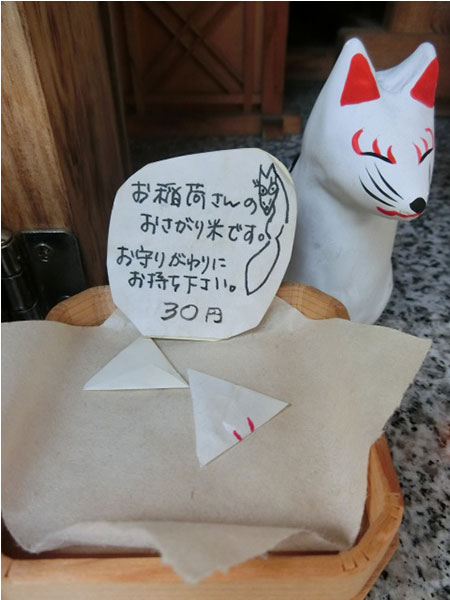 お稲荷さんの
おさがり米です。
お守りがわりに
お持ち下さい。
30円